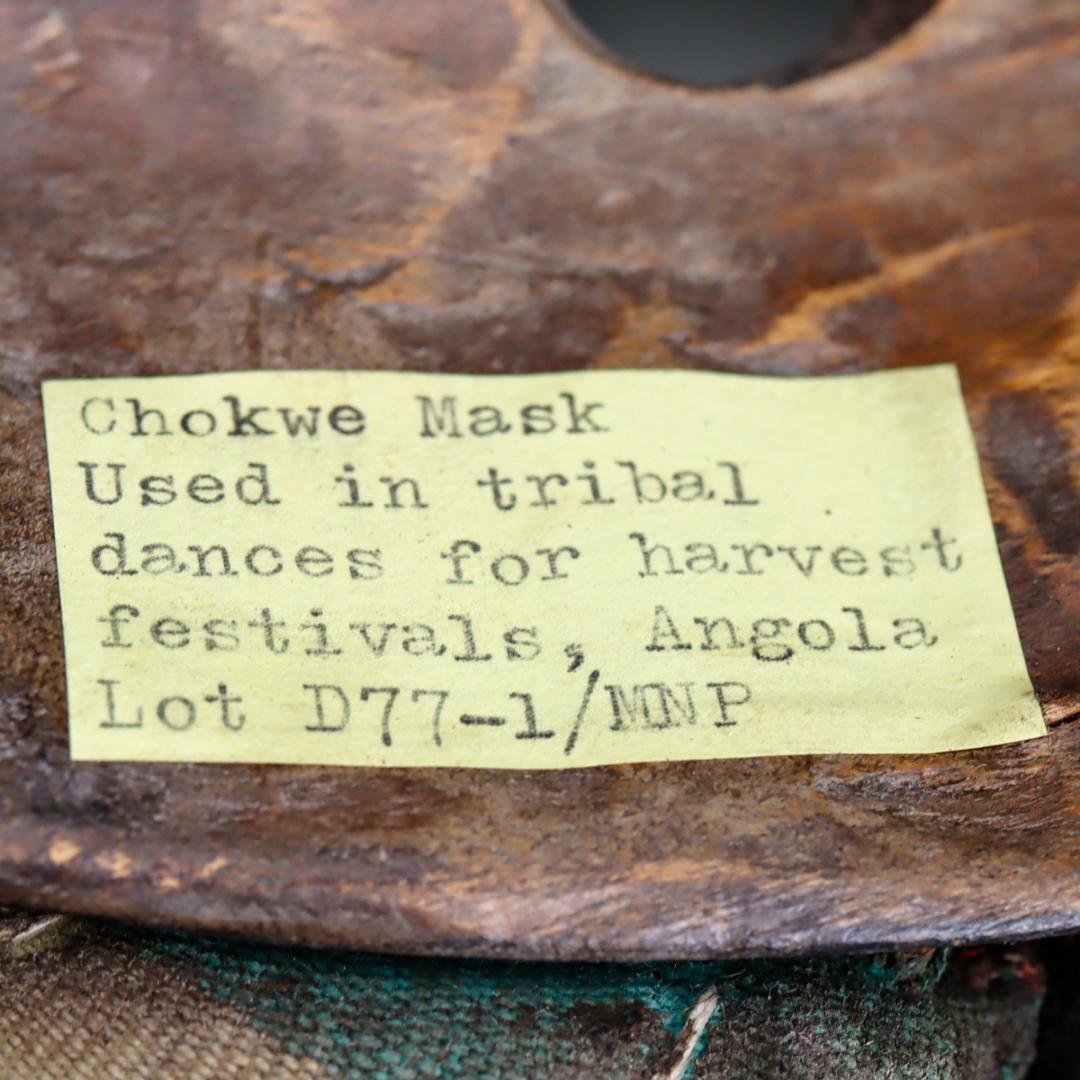 Chokwe Mask
Used in tribal
dances for harvest
festivals, Angola
Lot D77-1/MNP